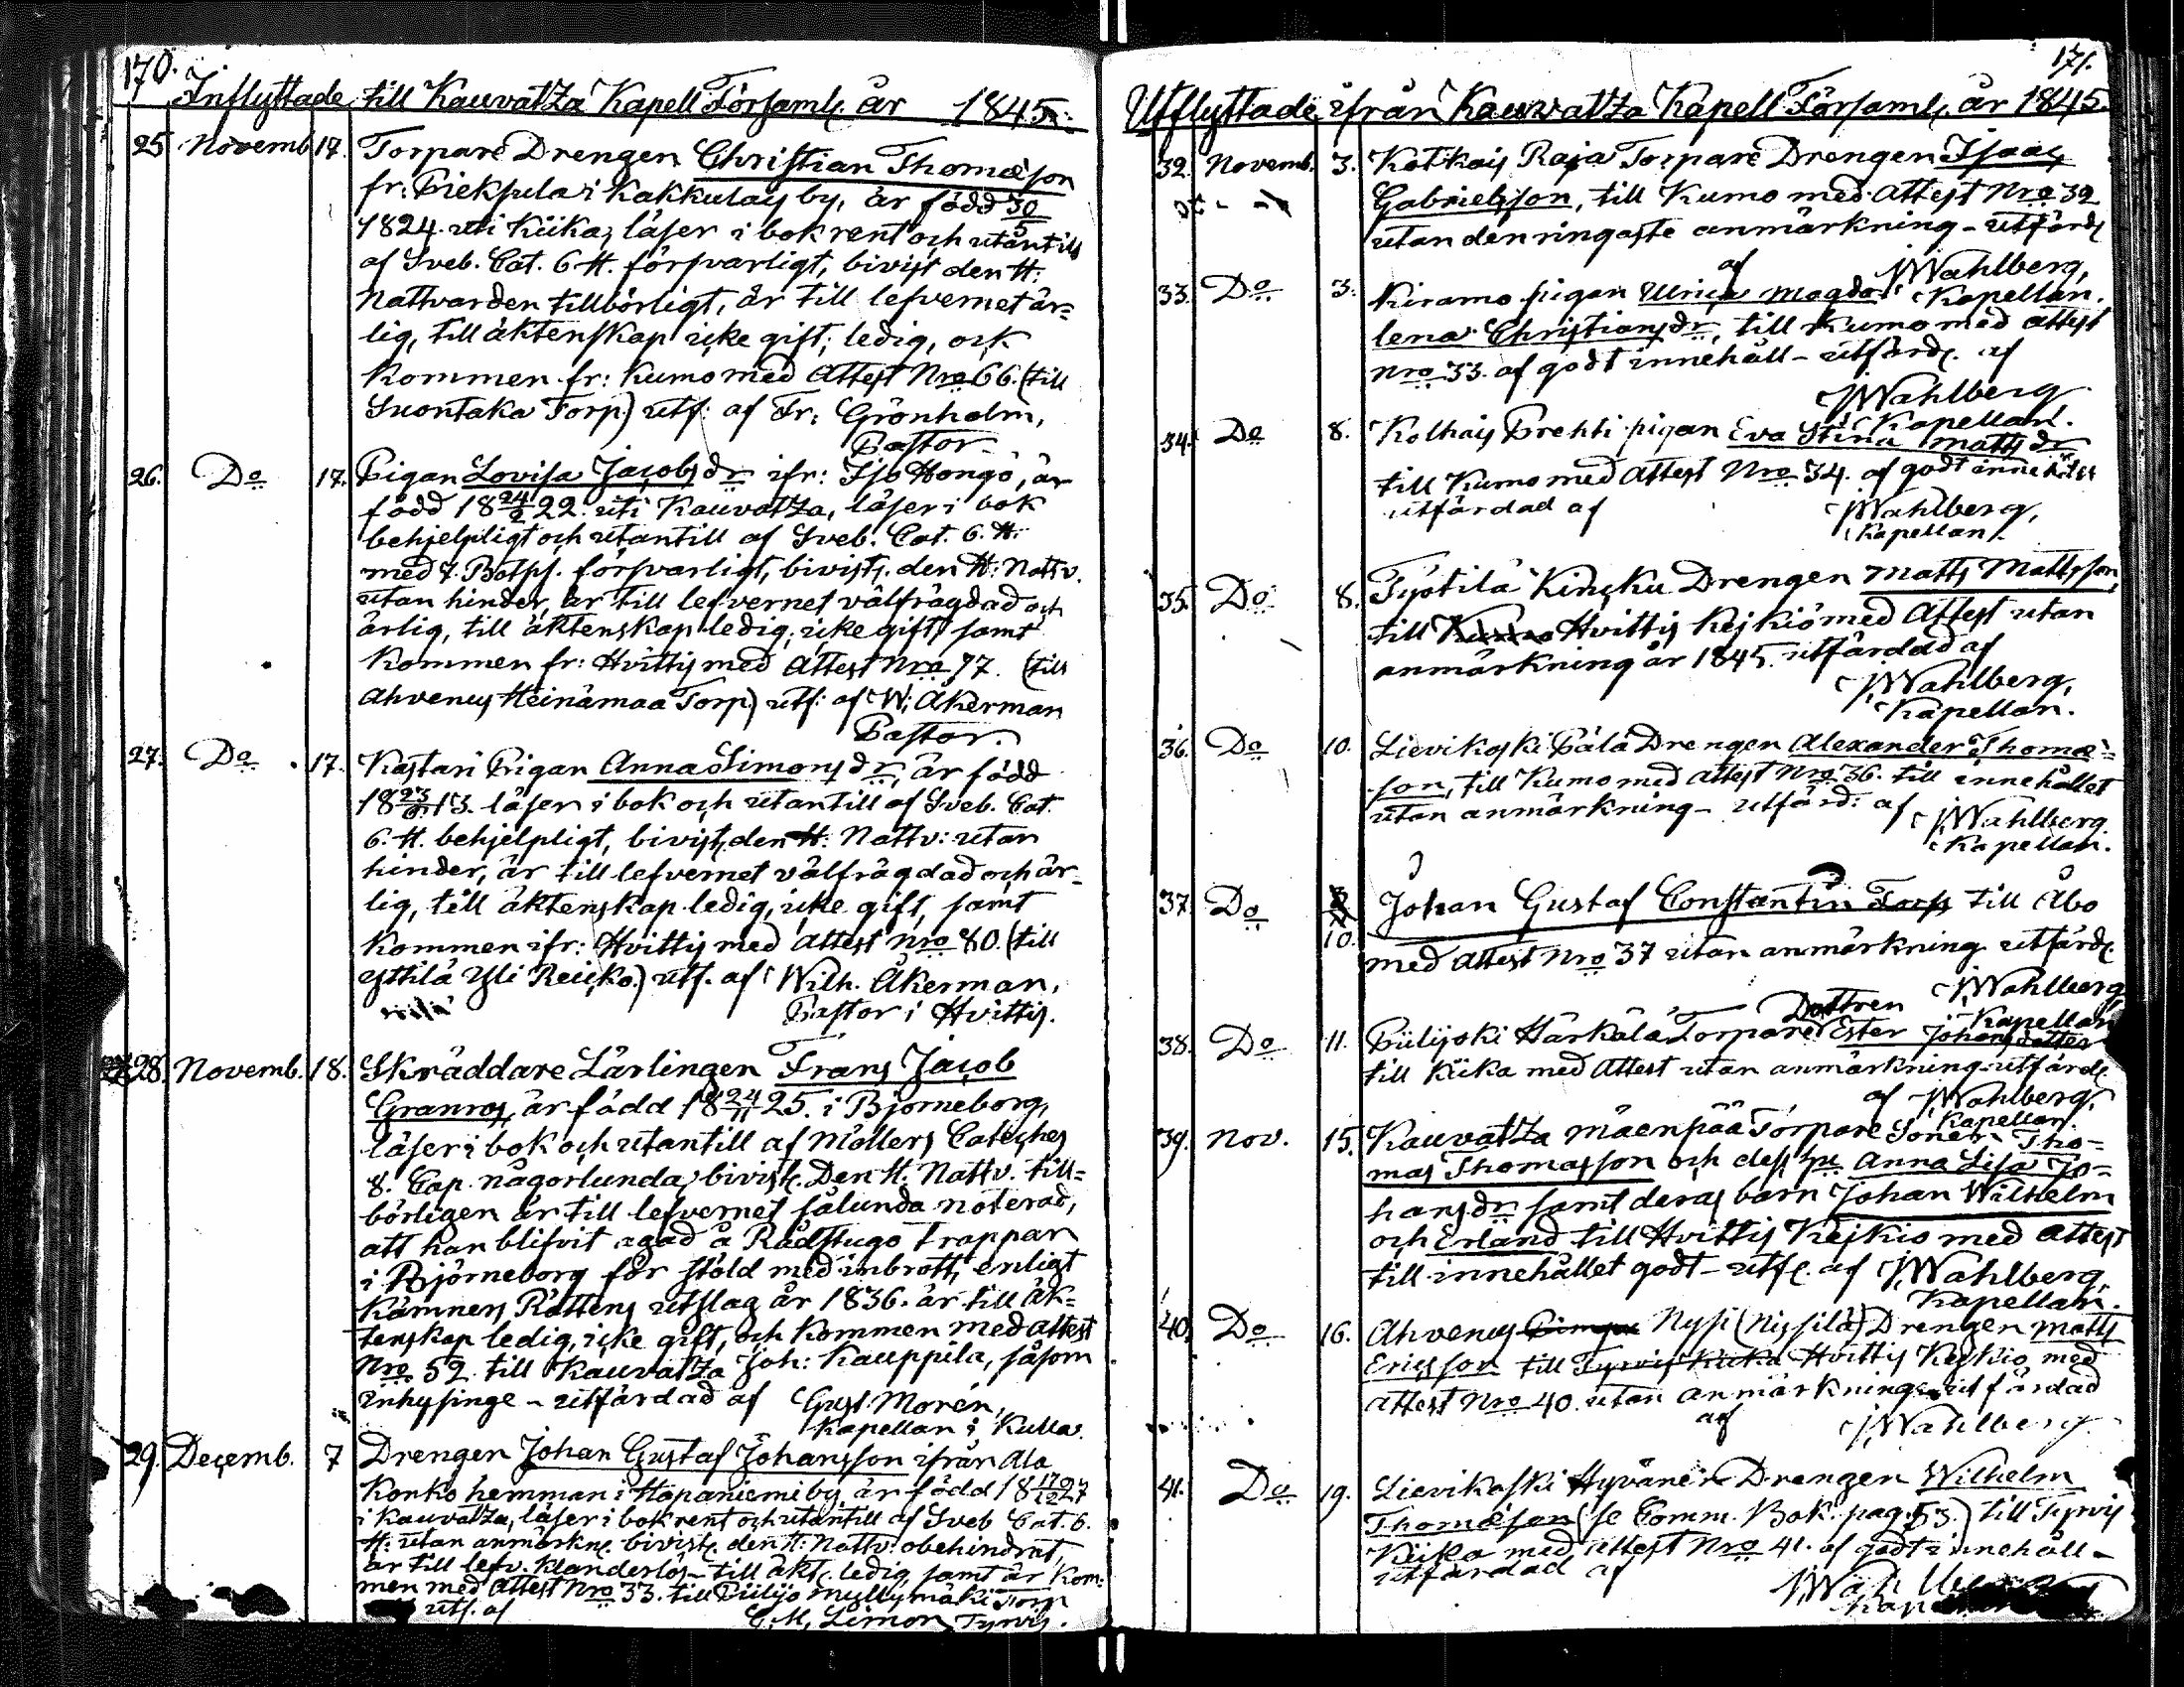 170.
Inflyttade till Kauvatza Kapell Församl. år 1845.
25 Novemb. 17. Torpare Drengen Christian Thomæson
fr: Piekſula i Kakkulais by, är född 30/5
1824. uti Kiikais, läſer i bok rent och utantill
af Sveb. Cat. 6 H. förſvarligt, bivist den H:
Nattvarden tillbörligt, är till lefvernet är=
lig, till äktenskap icke gift, ledig, och
kommen fr: Kumo med Attest Nro 66. (till
Suontaka Torp.) utf: af Fr: Grönholm,
Pastor.
26. Do 17. Pigan Lovisa Jacobsdr ifr: Iſo Hongo, är
född 18 24/2 22. uti Kauvatza, läſer i bok
behjelpligt och utantill af Sveb. Cat. 6. H.
med 7. Botps. förſvarligt, bivist. den H: Nattv.
utan hinder, är till lefvernet välfrägdad och
ärlig, till äktenskap ledig, icke gift, samt
kommen fr: Hvittis med Attest Nro 77. (till
Ahvenus Heinämaa Torp.) utf: af W: Åkerman
Pastor.
27. Do 17. Kastari Pigan Anna Simonsdr, är född
18 23/ 13. läſer i bok och utantill af Sveb. Cat.
6. H. behjelpligt, bivist. den H. Nattv: utan
hinder, är till lefvernet välfrägdad och är=
lig, till äktenskap ledig, icke gift, samt
kommen ifr: Hvittis med Attest Nro 80. (till
Yttilä Yli Reuko.) utf. af Wilh. Åkerman,
Pastor i Hvittis.
28. Novemb. 18. Skräddare Lärlingen Frans Jacob
Granros, är född 18 24/11 25. i Björneborg,
läſer i bok och utantill af Möllers Cateches
8. Cap. någorlunda, bivist. Den H. Nattv. till=
börligen är till lefvernet sålunda noterad,
att han blifvit agad å Rådstugo trappan
i Björneborg för stöld med inbrott, enligt
Kämners Rättens utslag år 1836. är till äk=
tenskap ledig, icke gift, och kommen med Attest
Nro 52. till Kauvatza Joh: Kauppila, såsom
inhysinge - utfärdad af Gust. Morén,
Kapellan i Kulla.
29. Decemb. 7 Drengen Johan Gustaf Johansson ifrån Ala
Konko hemman i Hapaniemi by, är född 18 17/12 27
i Kauvatza, läſer i bok rent och utantill af Sveb Cat. 6.
H: utan anmärkn. bivist. den H: Nattv: obehindrat,
är till lefv. klanderlös - till äkt. ledig samt är kom=
men med Attest Nro 33. till Piilijo myllymäki Torp
utf. af C. M. Limon Tyrvis.
171.
Utflyttade ifrån Kauvatza Kapell Församl. år 1845.
32. Novemb. 3. Kotkais Raja Torpare Drengen Isaac
Gabrielsson, till Kumo med Attest Nro 32
utan den ringaste anmärkning - utfärd.
af J Wahlberg,
Kapellan.
33. Do 3. Kiramo pigan Ulrica Magda=
lena Christiansdr, till Kumo med Attest
Nro 33. af godt innehåll - utfärd. af
J Wahlberg
Kapellan.
34. Do 8. Kolhais Prehti pigan Eva Stina Mattsdr
till Kumo med Attest Nro 34. af godt innehåll
utfärdad af J Wahlberg,
Kapellan.
35. Do 8. Työtilä Kincku Drengen Matts Mattsson,
till Kumo Hvittis Kejkiö med Attest utan
anmärkning år 1845. utfärdad af
J Wahlberg,
Kapellan.
36. Do 10. Lievikoski Pälä Drengen Alexander Thomæ=
son, till Kumo med Attest Nro 36. till innehållet
utan anmärkning - utfärd: af J Wahlberg.
Kapellan.
37. Do 10. Johan Gustaf Constantin Torp till Åbo
med Attest Nro 37 utan anmärkning utfärd.
J Wahlberg,
Kapellan
38. Do 11. Piilijoki Härkälä Torpare Dottren Ester Johansdotter
till Kiika med Attest utan anmärkning utfärd.
af J Wahlberg,
Kapellan.
39. Nov. 15. Kauvatza Mäenpää Torpare Sonen Tho=
mas Thomasson och deſs hu. Anna Lisa Jo=
hansdr samt deras barn Johan Wilhelm
och Erland till Hvittis Kejkio med Attest
till innehållet godt - utf. af J Wahlberg,
Kapellan.
40. Do 16. Ahvenus Nysi (Nissilä) Drengen Matts
Ericsson till Tyrvis Kiika Hvittis Kejkio, med
Attest Nro 40. utan anmärkning utfärdad
af J Wahlberg.
41. Do 19. Lievikoski Hyvänen Drengen Wilhelm
Thomæson (se Comm. Bok. pag. 53.) till Tyrvis
Kiika med Attest Nro 41. af godt innehåll -
utfärdad af
J Wahlberg